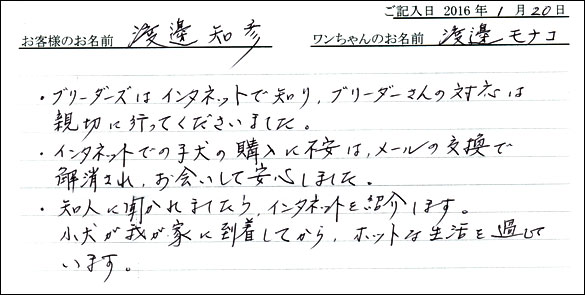 ご記入日 2016 年 1 月 20 日
お客様のお名前 渡邉 知彦 ワンちゃんのお名前 渡邉 モナコ
・ブリーダーズはインタネットで知り、ブリーダーさんの対応は
親切に行ってくださいました。
・インタネットでの子犬の購入に不安は、メールの交換で
解消され、お会いして安心しました。
・知人に聞かれましたら、インタネットを紹介します。
小犬が我が家に到着してから、ホットな生活を過して
います。